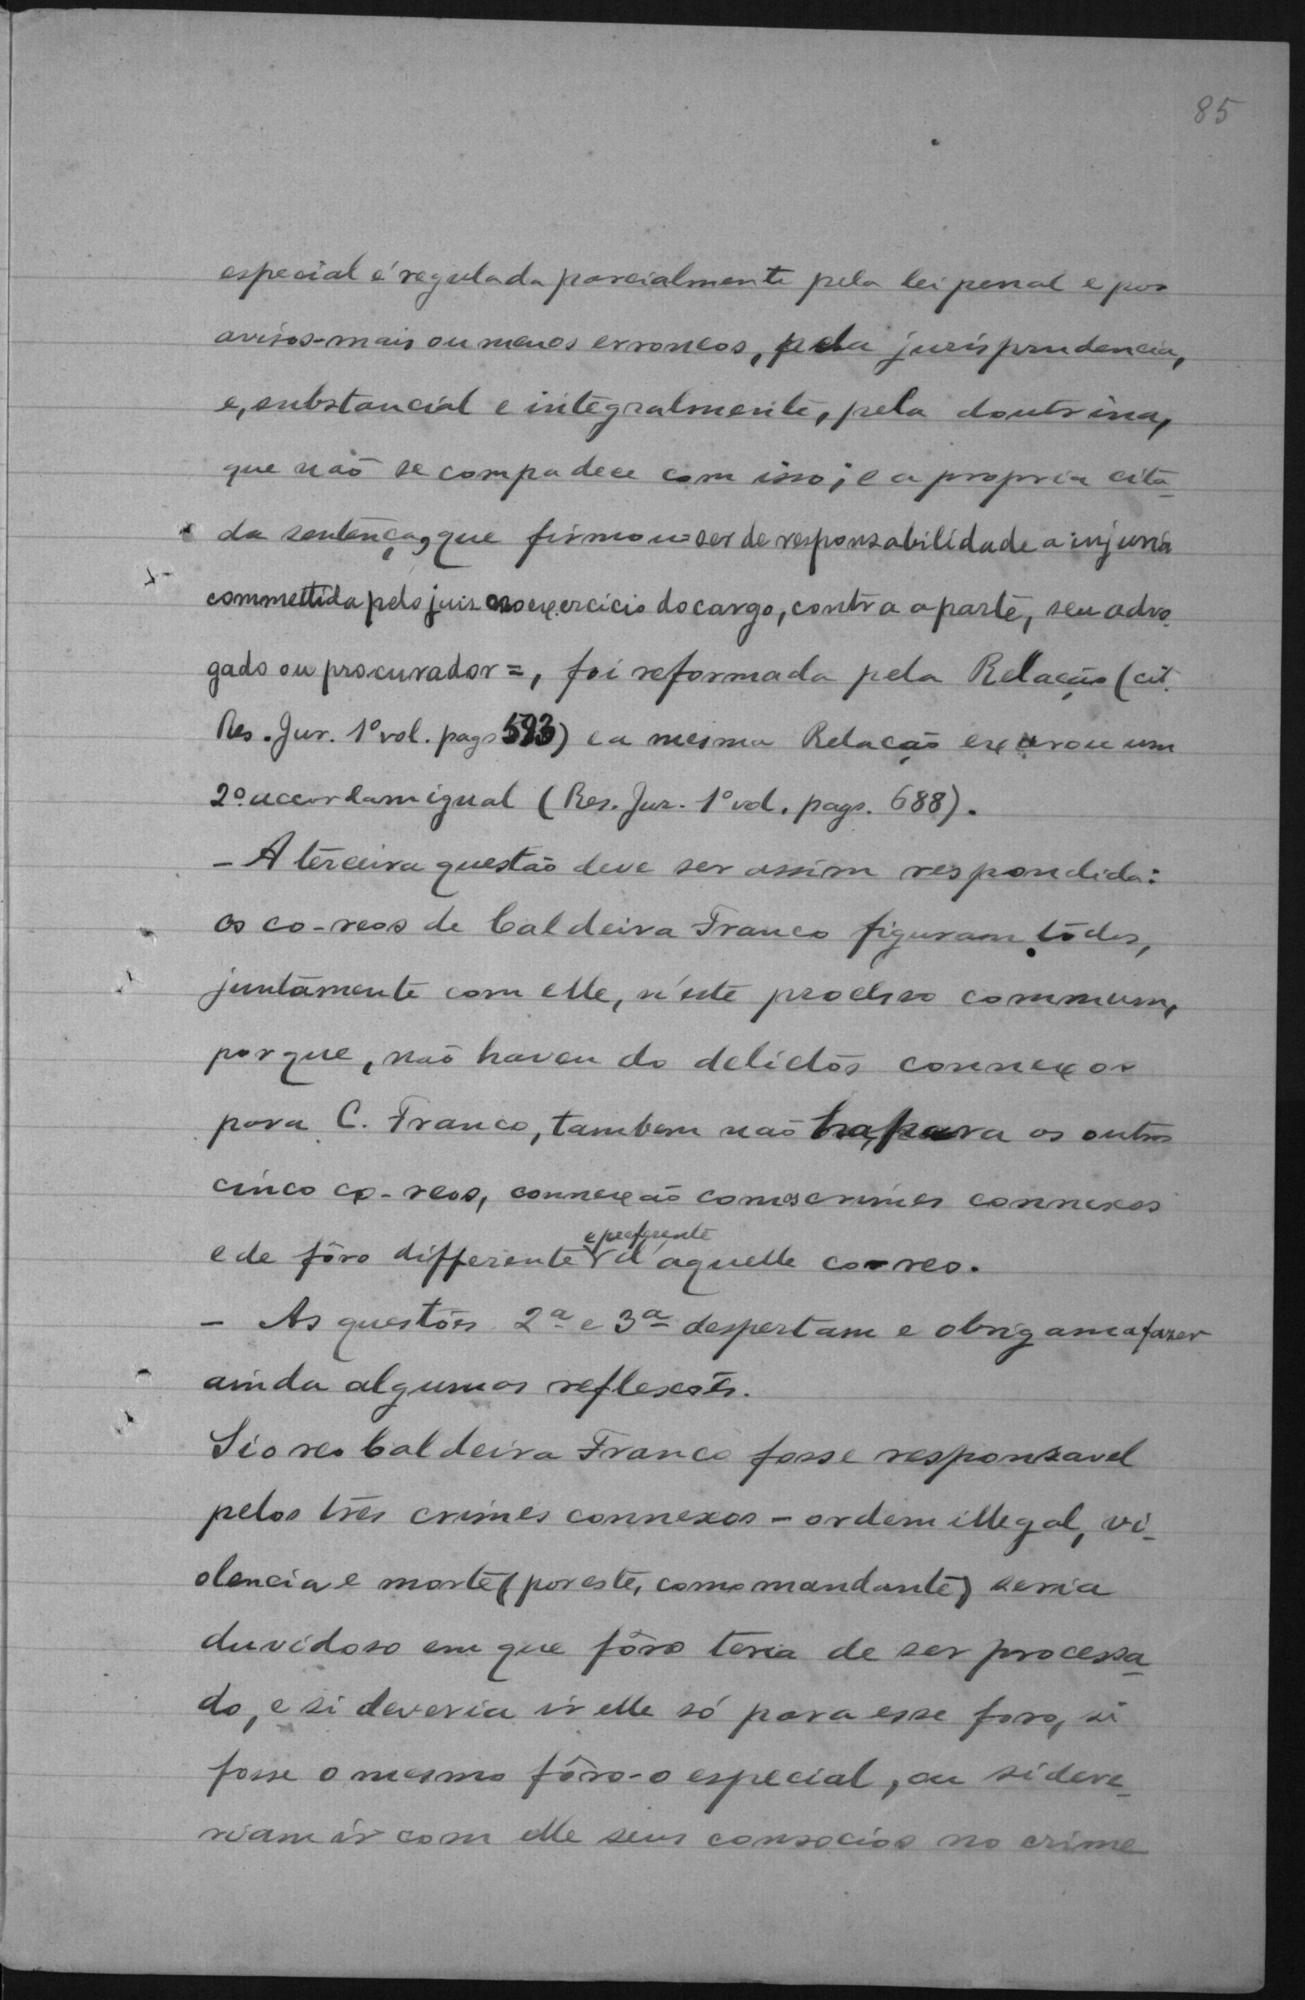 85
especial é regulada parcialmente pela lei penal e por
avisos-mais ou menos erroneos, pela jurisprudencia,
e, substancial e integralmente, pela doutrina,
que não se compadece com isso; e a propria cita-
da sentença, que firmou ser de responsabilidade a injuria
commettida pelo juiz no exercicio do cargo, contra a parte, seu advo-
gado ou procurador =, foi reformada pela Relação (cit.
Res. Jur. 1º vol. pags 593) e a mesma Relação exarou um
2º accordam igual (Res. Jur. 1º vol. pags. 688).
- A terceira questão deve ser assim respondida:
os co-reos de Caldeira Franco figuram todos,
juntamente com elle, n'este processo commum,
porque, não havendo delictos connexos
para C. Franco, tambem não ha para os outros
cinco co-reos, connexão com os crimes connexos
e preferente
e de fôro differente d'aquelle co-reo.
- As questões 2ª e 3ª despertam e obrigam a fazer
ainda algumas reflexões.
Si o reo Caldeira Franco fosse responsavel
pelos três crimes connexos - ordem illegal, vi-
olencia e morte (por este, como mandante) seria
duvidoso em que fôro teria de ser processa-
do, e si deveria ir elle só para esse foro, si
fosse o mesmo fôro-o especial, ou si deve-
riam ir com elle seus consocios no crime